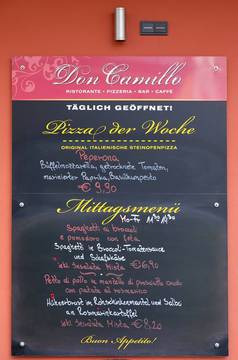 Don Camillo
RISTORANTE • PIZZERIA • BAR • CAFFÈ
TÄGLICH GEÖFFNET!
Pizza der Woche
ORIGINAL ITALIENISCHE STEINOFENPIZZA
Peperona
Büffelmozzarella, getrocknete Tomaten,
marinierter Paprika, Basilikumpesto
€ 9,90
Mittagsmenü
Mo-Fr
Spaghetti ai broccoli
e pomodoro con feta
Spaghetti in Broccoli-Tomatensauce
und Schafskäse
inkl. Insalata Mista € 6,90
Petto di pollo in mantello di prosciutto crudo
con patate al rosmarino
Hühnerbrust im Rohschinkenmantel und Salbei
an Rosmarinkartoffel
inkl. Insalata Mista € 8,20
Buon Appetito!